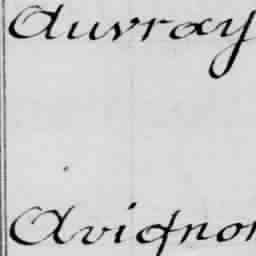 Auvray
Avignon